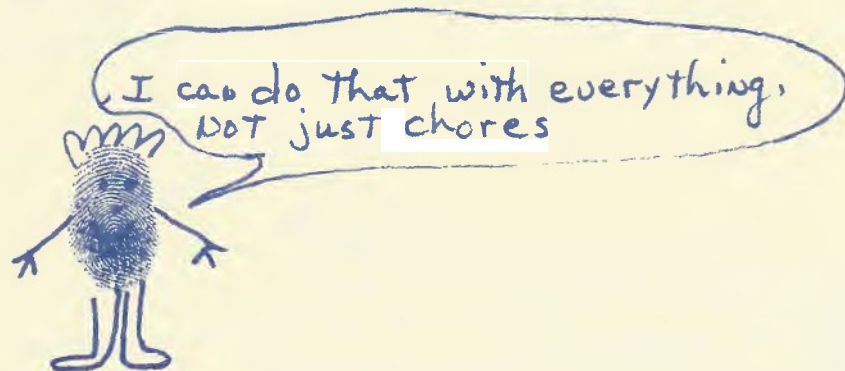 I can do that with everything,
not just chores